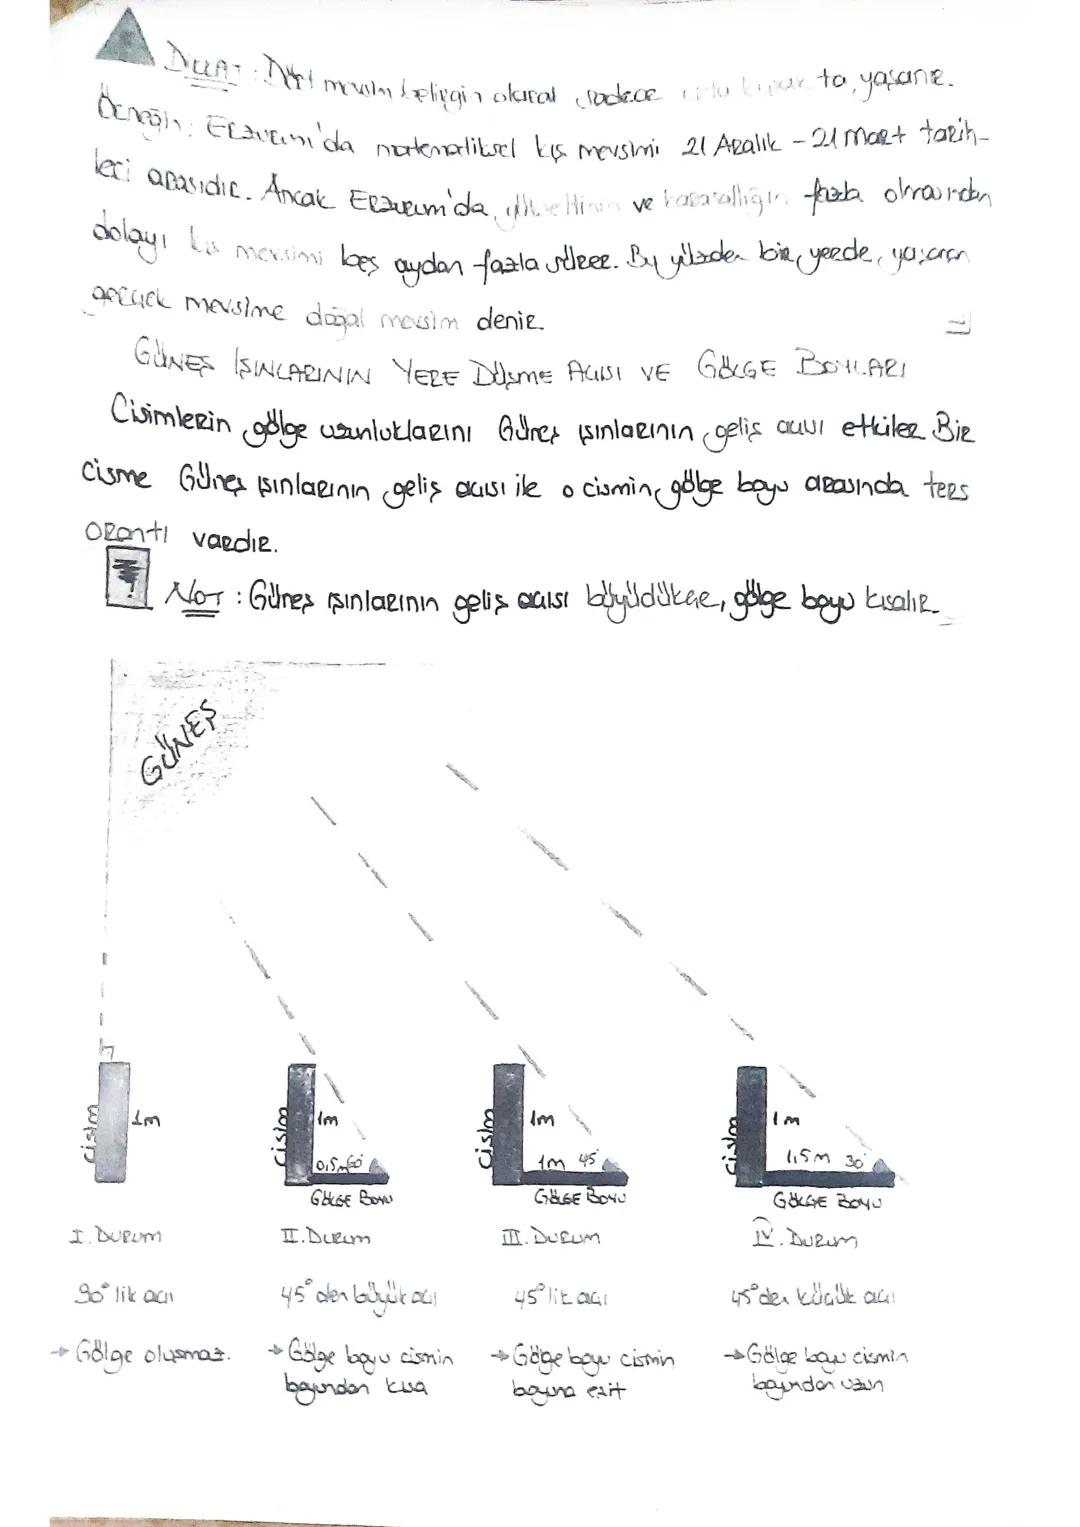 DİKKAT : Dört mevsim belirgin olarak sadece orta kuşak ta yaşanır.
Örneğin: Erzurum'da matematiksel kış mevsimi 21 Aralık - 21 Mart tarih-
leri arasıdır. Ancak Erzurum'da, ve karasallığın fazla olmasından
dolayı kış mevsimi beş aydan fazla sürer. Bu yüzden bir yerde, yaşanan
gerçek mevsime doğal mevsim denir.
GÜNEŞ IŞINLARININ YERE DÜŞME AÇISI VE GÖLGE BOYLARI
Cisimlerin gölge uzunluklarını Güneş ışınlarının geliş açısı etkiler Bir
cisme Güneş ışınlarının geliş açısı ile o cismin gölge boyu arasında ters
orantı vardır.
NOT : Güneş ışınlarının geliş açısı büyüdükçe, gölge boyu kısalır.
GÜNEŞ
cisim 1m
cisim 1m 0,5m 60°
GÖLGE BOYU
cisim 1m 1m 45°
GÖLGE BOYU
cisim 1m 1,5m 30°
GÖLGE BOYU
I. DURUM
II. DURUM
III. DURUM
IV. DURUM
90° lik açı
45° den büyük açı
45° lik açı
45° den küçük açı
→ Gölge oluşmaz.
→ Gölge boyu cismin
boyundan kısa
→ Gölge boyu cismin
boyuna eşit
→ Gölge boyu cismin
boyundan uzun